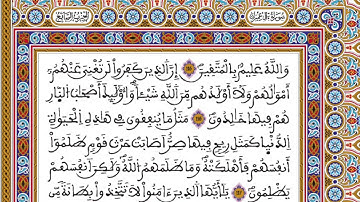 سورة آل عمران
الحزب السابع
وَاللَّهُ عَلِيمٌ بِالْمُتَّقِينَ إِنَّ الَّذِينَ كَفَرُوا لَن تُغْنِيَ عَنْهُمْ
أَمْوَٰلُهُمْ وَلَا أَوْلَٰدُهُم مِّنَ اللَّهِ شَيْئًا وَأُوْلَٰئِكَ أَصْحَٰبُ النَّارِ
هُمْ فِيهَا خَٰلِدُونَ مَثَلُ مَا يُنفِقُونَ فِي هَٰذِهِ الْحَيَوٰةِ
الدُّنْيَا كَمَثَلِ رِيحٍ فِيهَا صِرٌّ أَصَابَتْ حَرْثَ قَوْمٍ ظَلَمُوا
أَنفُسَهُمْ فَأَهْلَكَتْهُ وَمَا ظَلَمَهُمُ اللَّهُ وَلَٰكِنْ أَنفُسَهُمْ
يَظْلِمُونَ يَٰأَيُّهَا الَّذِينَ ءَامَنُوا لَا تَتَّخِذُوا بِطَانَةً مِّن